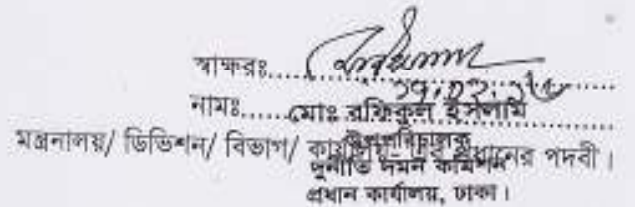 স্বাক্ষরঃ
নামঃ মোঃ রফিকুল ইসলাম
মন্ত্রনালয়/ ডিভিশন/ বিভাগ/ প্রধানের পদবী।
উপপরিচালক
দুর্নীতি দমন কমিশন
প্রধান কার্যালয়, ঢাকা।